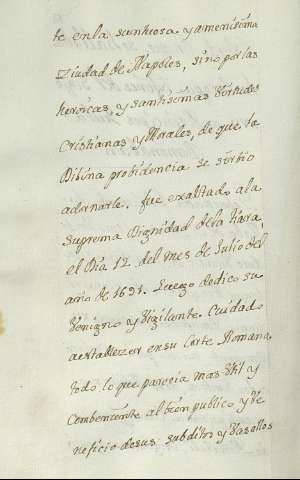 te en la suntuosa y amenisima
Ziudad de Napoles, sino por las
heroicas, y santisimas Virtudes
Cristianas y Morales, de que la
Dibina probidencia se sirbio
adornarle. fue exaltado a la
suprema Dignidad de la tiara,
el Dia 12 del mes de Julio del
año de 1691. Luego dedico su
benigno y Vigilante Cuidado
a establezer en su Corte Romana
todo lo que parecia mas Vtil y
Combeniente al bien publico y be
neficio de sus subditos y Vasallos